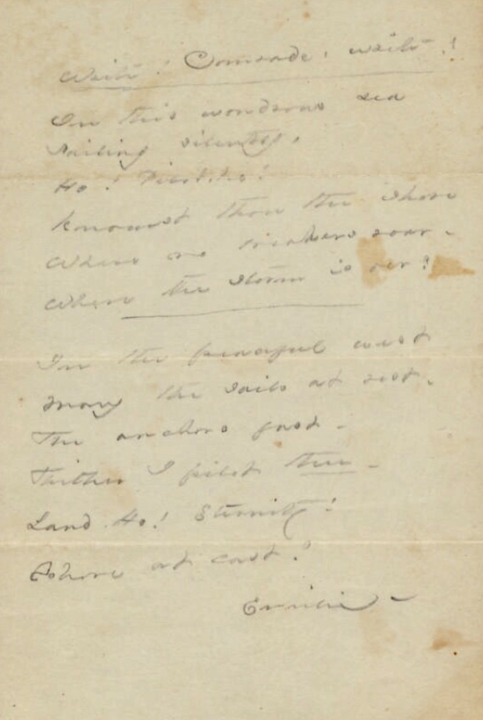 Write! Comrade, write!
On this wondrous sea
Sailing silently,
Ho! Pilot, ho!
Knowest thou the shore
Where no breakers roar -
Where the storm is oer?
In the peaceful west
Many the sails at rest -
The anchors fast -
Thither I pilot thee -
Land Ho! Eternity!
Ashore at last!
Emilie -